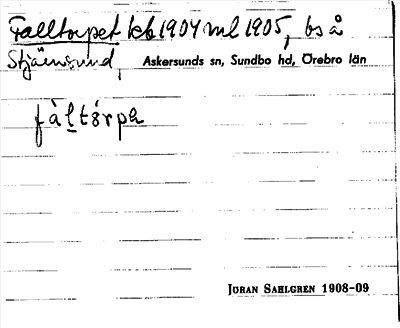 Falltorpet kb 1904 ml 1905, bs å
Stjärnsund, Askersunds sn, Sundbo hd, Örebro län
fàl̲tó̤rpa
JÖRAN SAHLGREN 1908-09